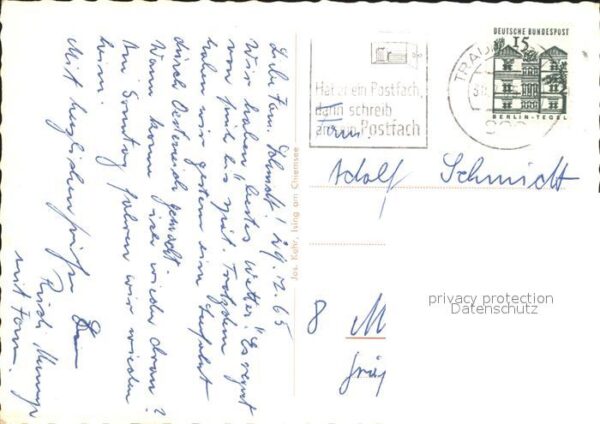 Liebe Fam. Schmidt! 29.7.65
Wir haben "bestes Wetter". Es regnet
von früh bis spät. Trotzdem
haben wir gestern eine
durch Oesterreich gemacht.
Wann kommt Ihr wieder dran?
Am Sonntag fahren wir wieder
heim.
Mit herzlichen Grüßen

mit Fam.
Jos. Kühr, Ising am Chiemsee
Hat er ein Postfach,
dann schreib
ans Postfach
TRAU
DEUTSCHE BUNDESPOST
15
BERLIN-TEGEL
Fam.
Adolf Schmidt
8 M
privacy protection
Datenschutz